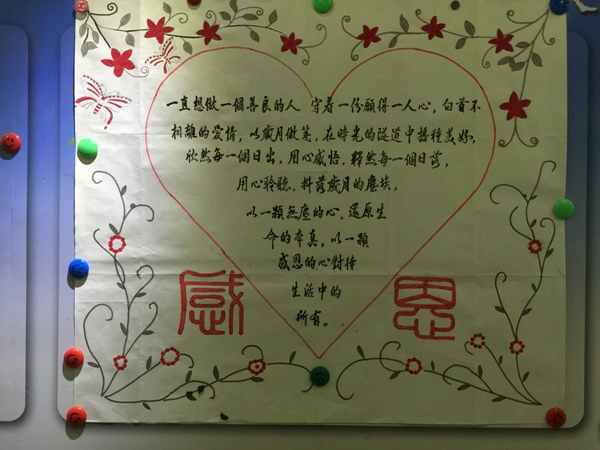 一直想做一個善良的人 守着一份願得一人心，白首不
相離的爱情，以歲月做笺，在時光的隧道中播種美好，
欣然每一個日出，用心感悟，释然每一個日落，
用心聆聽，抖落歲月的塵埃，
以一顆無塵的心，還原生
命的本真，以一顆
感恩的心對待
生活中的
所有。
感 恩